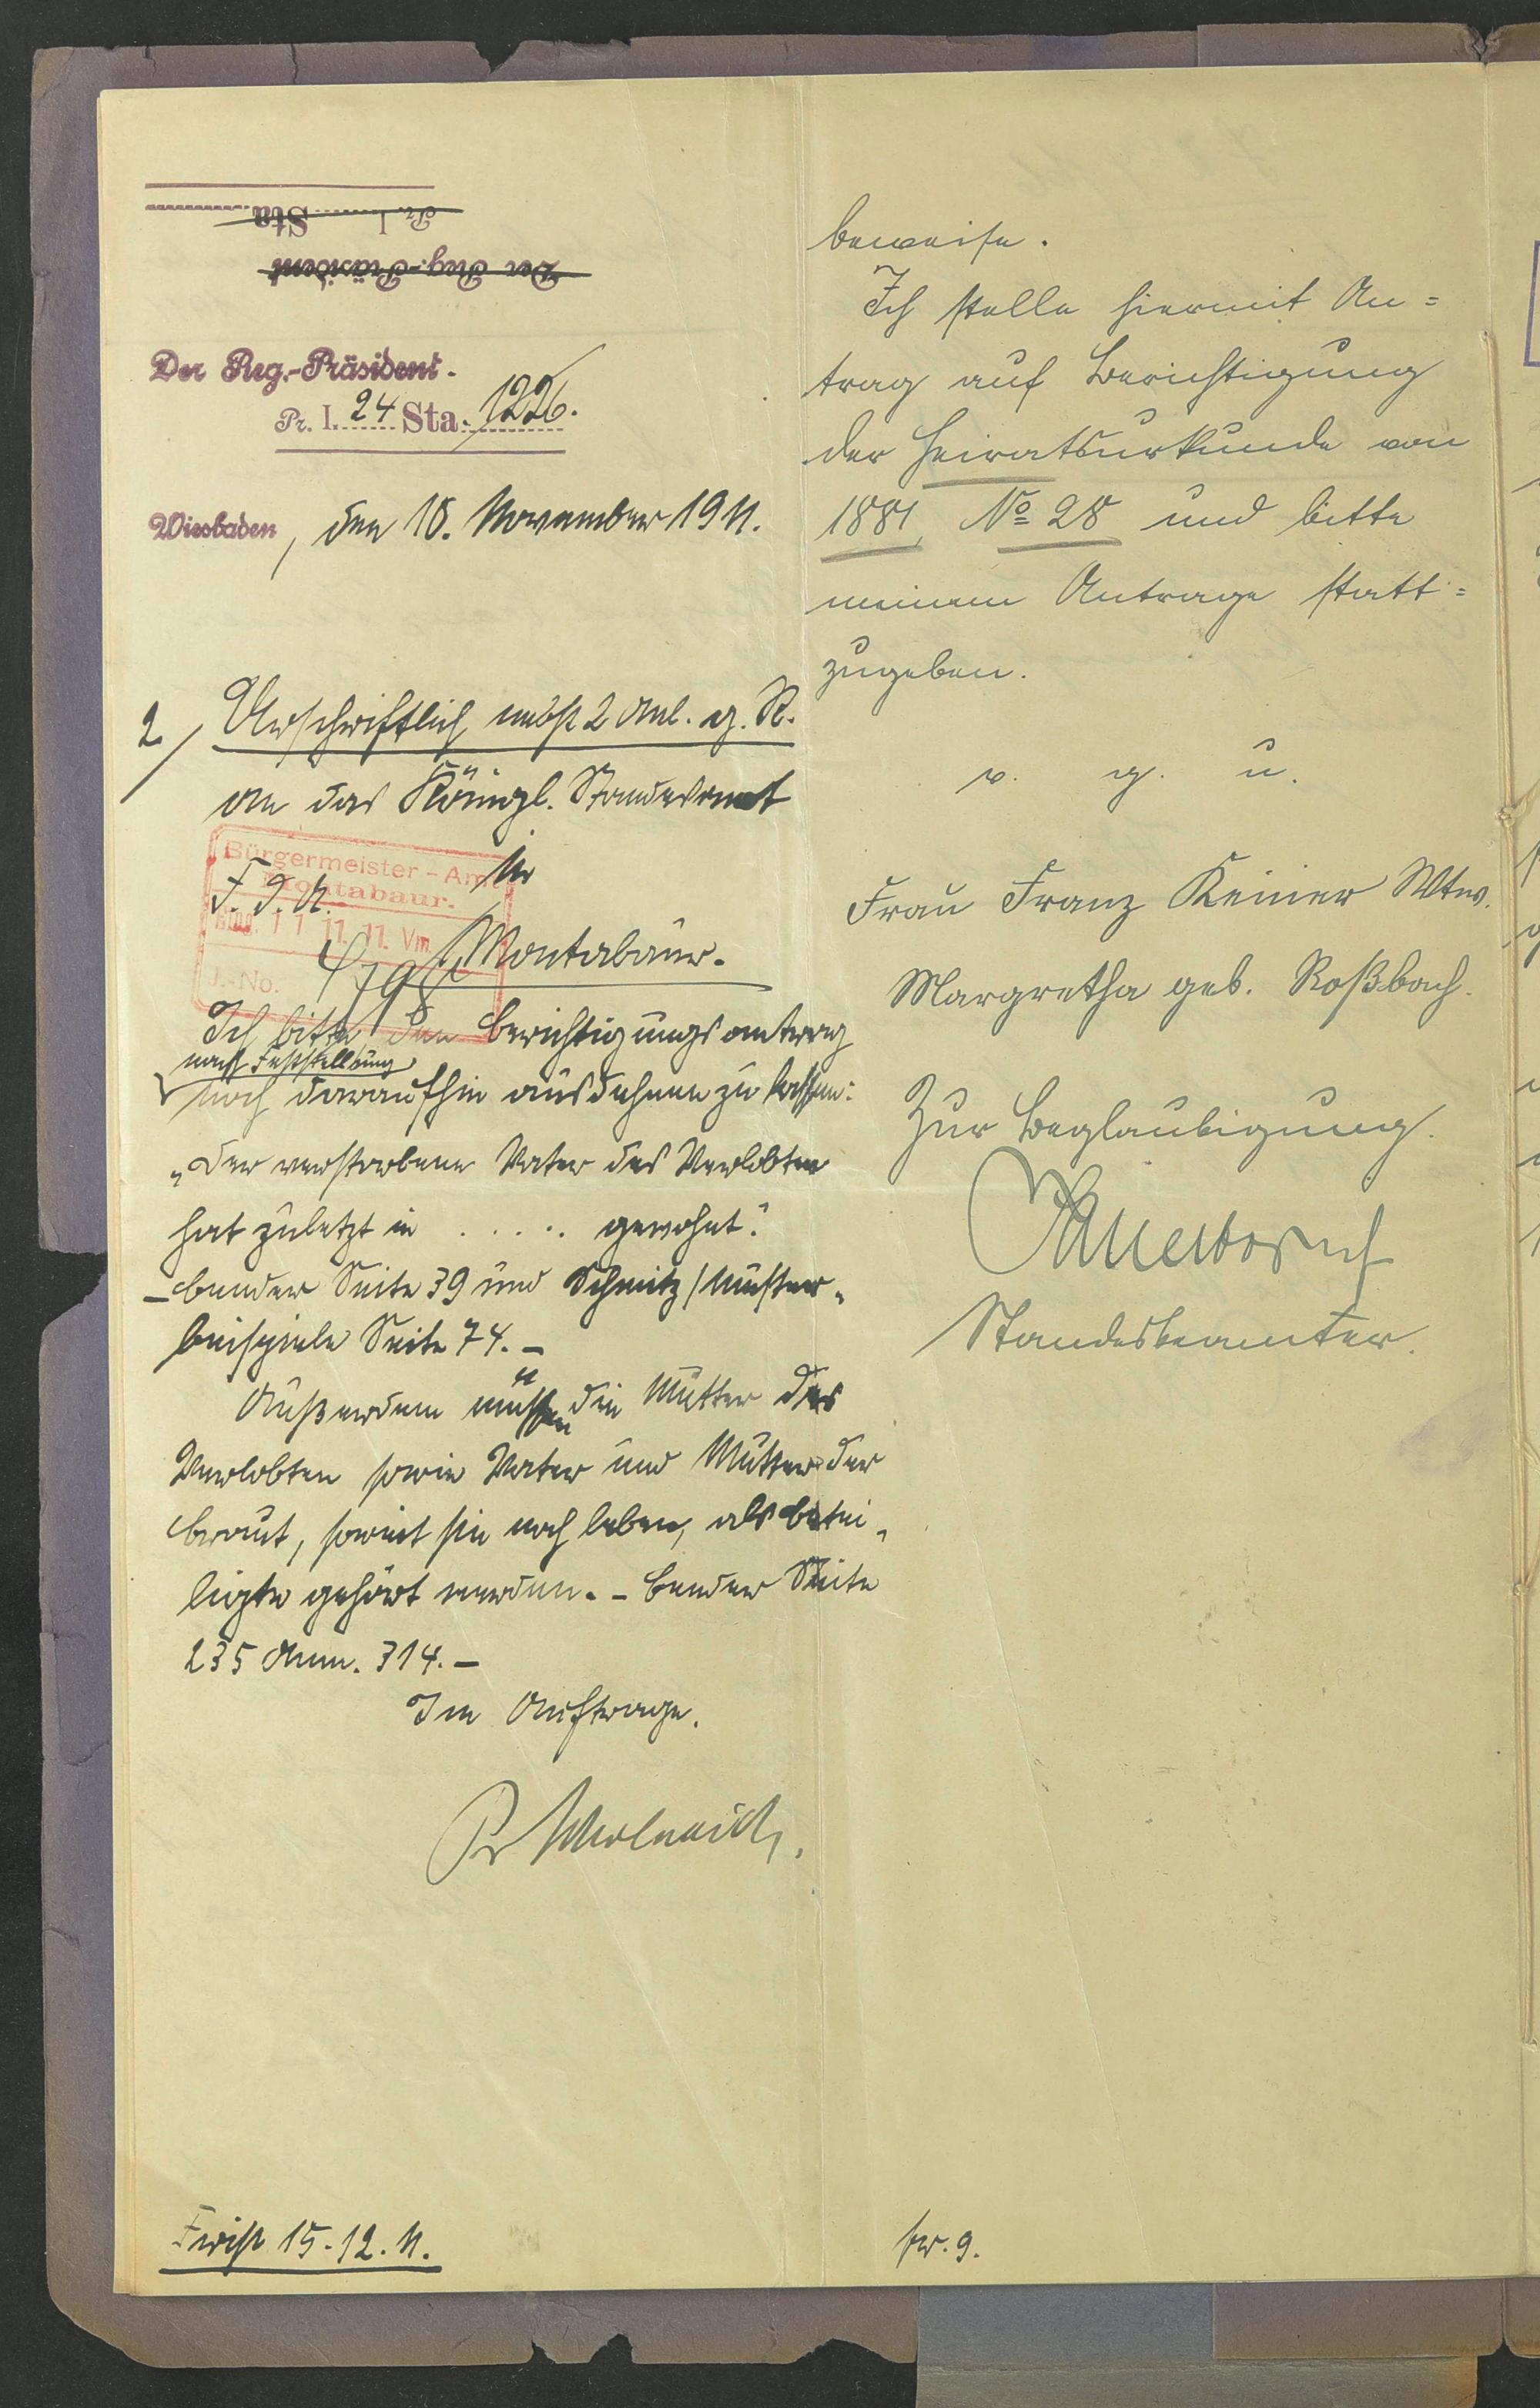 Pr. I. Sta
Der Reg.-Präsident
Der Reg.-Präsident.
Pr. I. 24 Sta. 1226.
Wiesbaden, den 18. November 1911.
2/ Urschriftlich nebst 2 Anl. g. R.
an das Königl. Standesamt
Bürgermeister-Amt
Montabaur.
11. 11. Vm
J.-No.
F. d. R.
in
Montabaur.
Ich bitte den Berichtigungsantrag
nach Feststellung
noch daraufhin ausdehnen zu lassen:
„Der verstorbene Vater des Verlobten
hat zuletzt in ..... gewohnt."
– Bender Seite 39 und Schmitz/Muster-
beispiele Seite 74. –
Außerdem müssen die Mutter des
Verlobten sowie Vater und Mutter der
Braut, soweit sie noch leben, als betei-
ligte gehört werden. – Bender Seite
235 Anm. 314. –
Im Auftrage.
Frist 15.12.11.
beweise.
Ich stelle hiermit An=
trag auf Berichtigung
der Heiratsurkunde von
1881, No 28 und bitte
meinem Antrage statt=
zugeben.
v. g. u.
Frau Franz Keiner Wtw.
Margretha geb. Roßbach.
Zur Beglaubigung.
Standesbeamter.